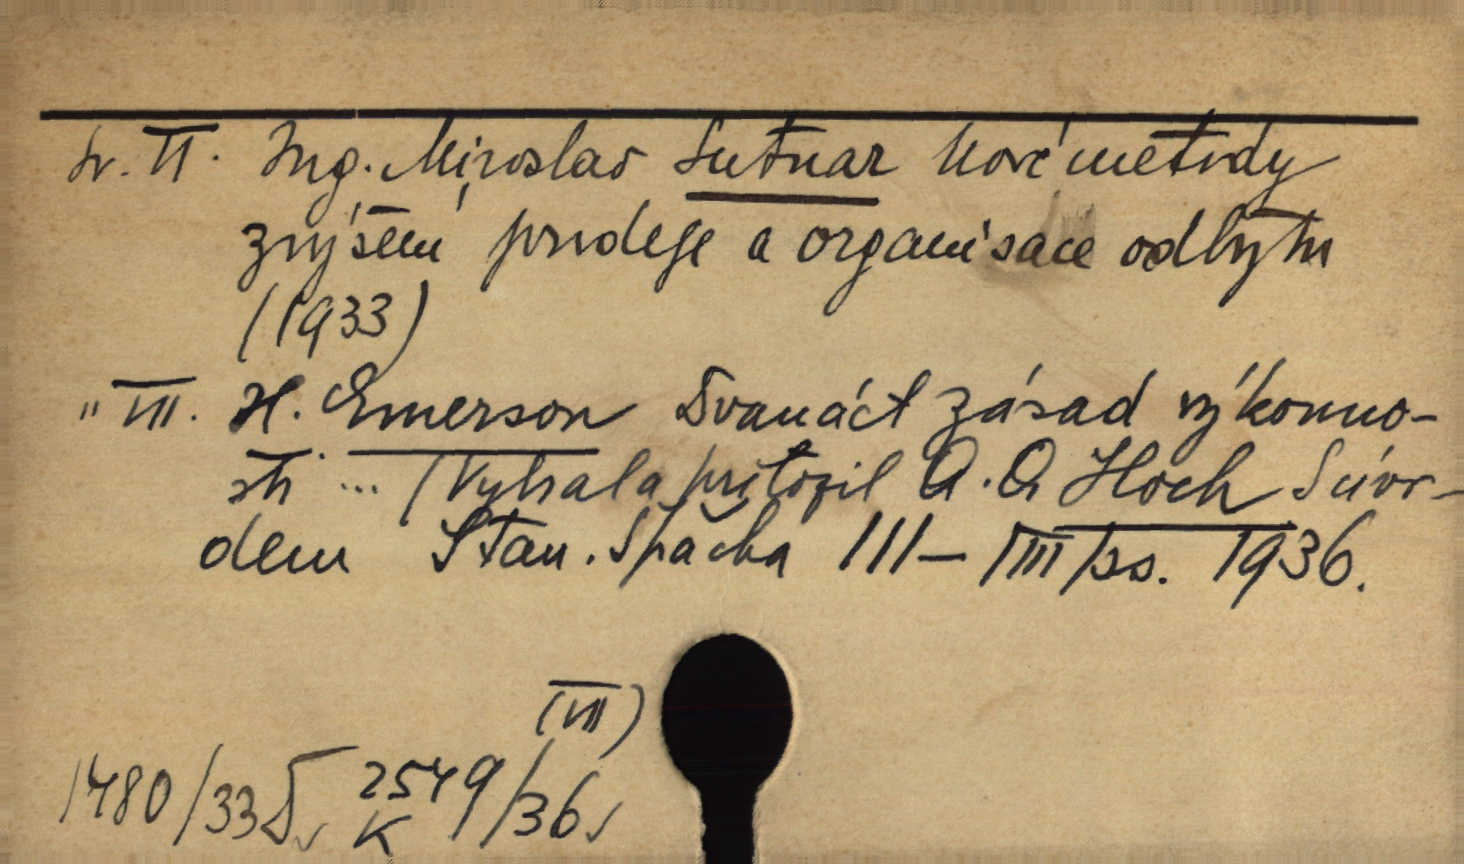 Sv. VI. Ing. Miroslav Sutnar Nové metody
zvýšení prodeje a organisace odbytu
(1933)
" VII. H. Emerson Dvanáct zásad výkonno-
sti ... (Vybral a přeložil A. O. Hoch S úvo-
dem Stan. Špačka III–VIII/ss. 1936.
(VII)
1480/33 2549/36
K